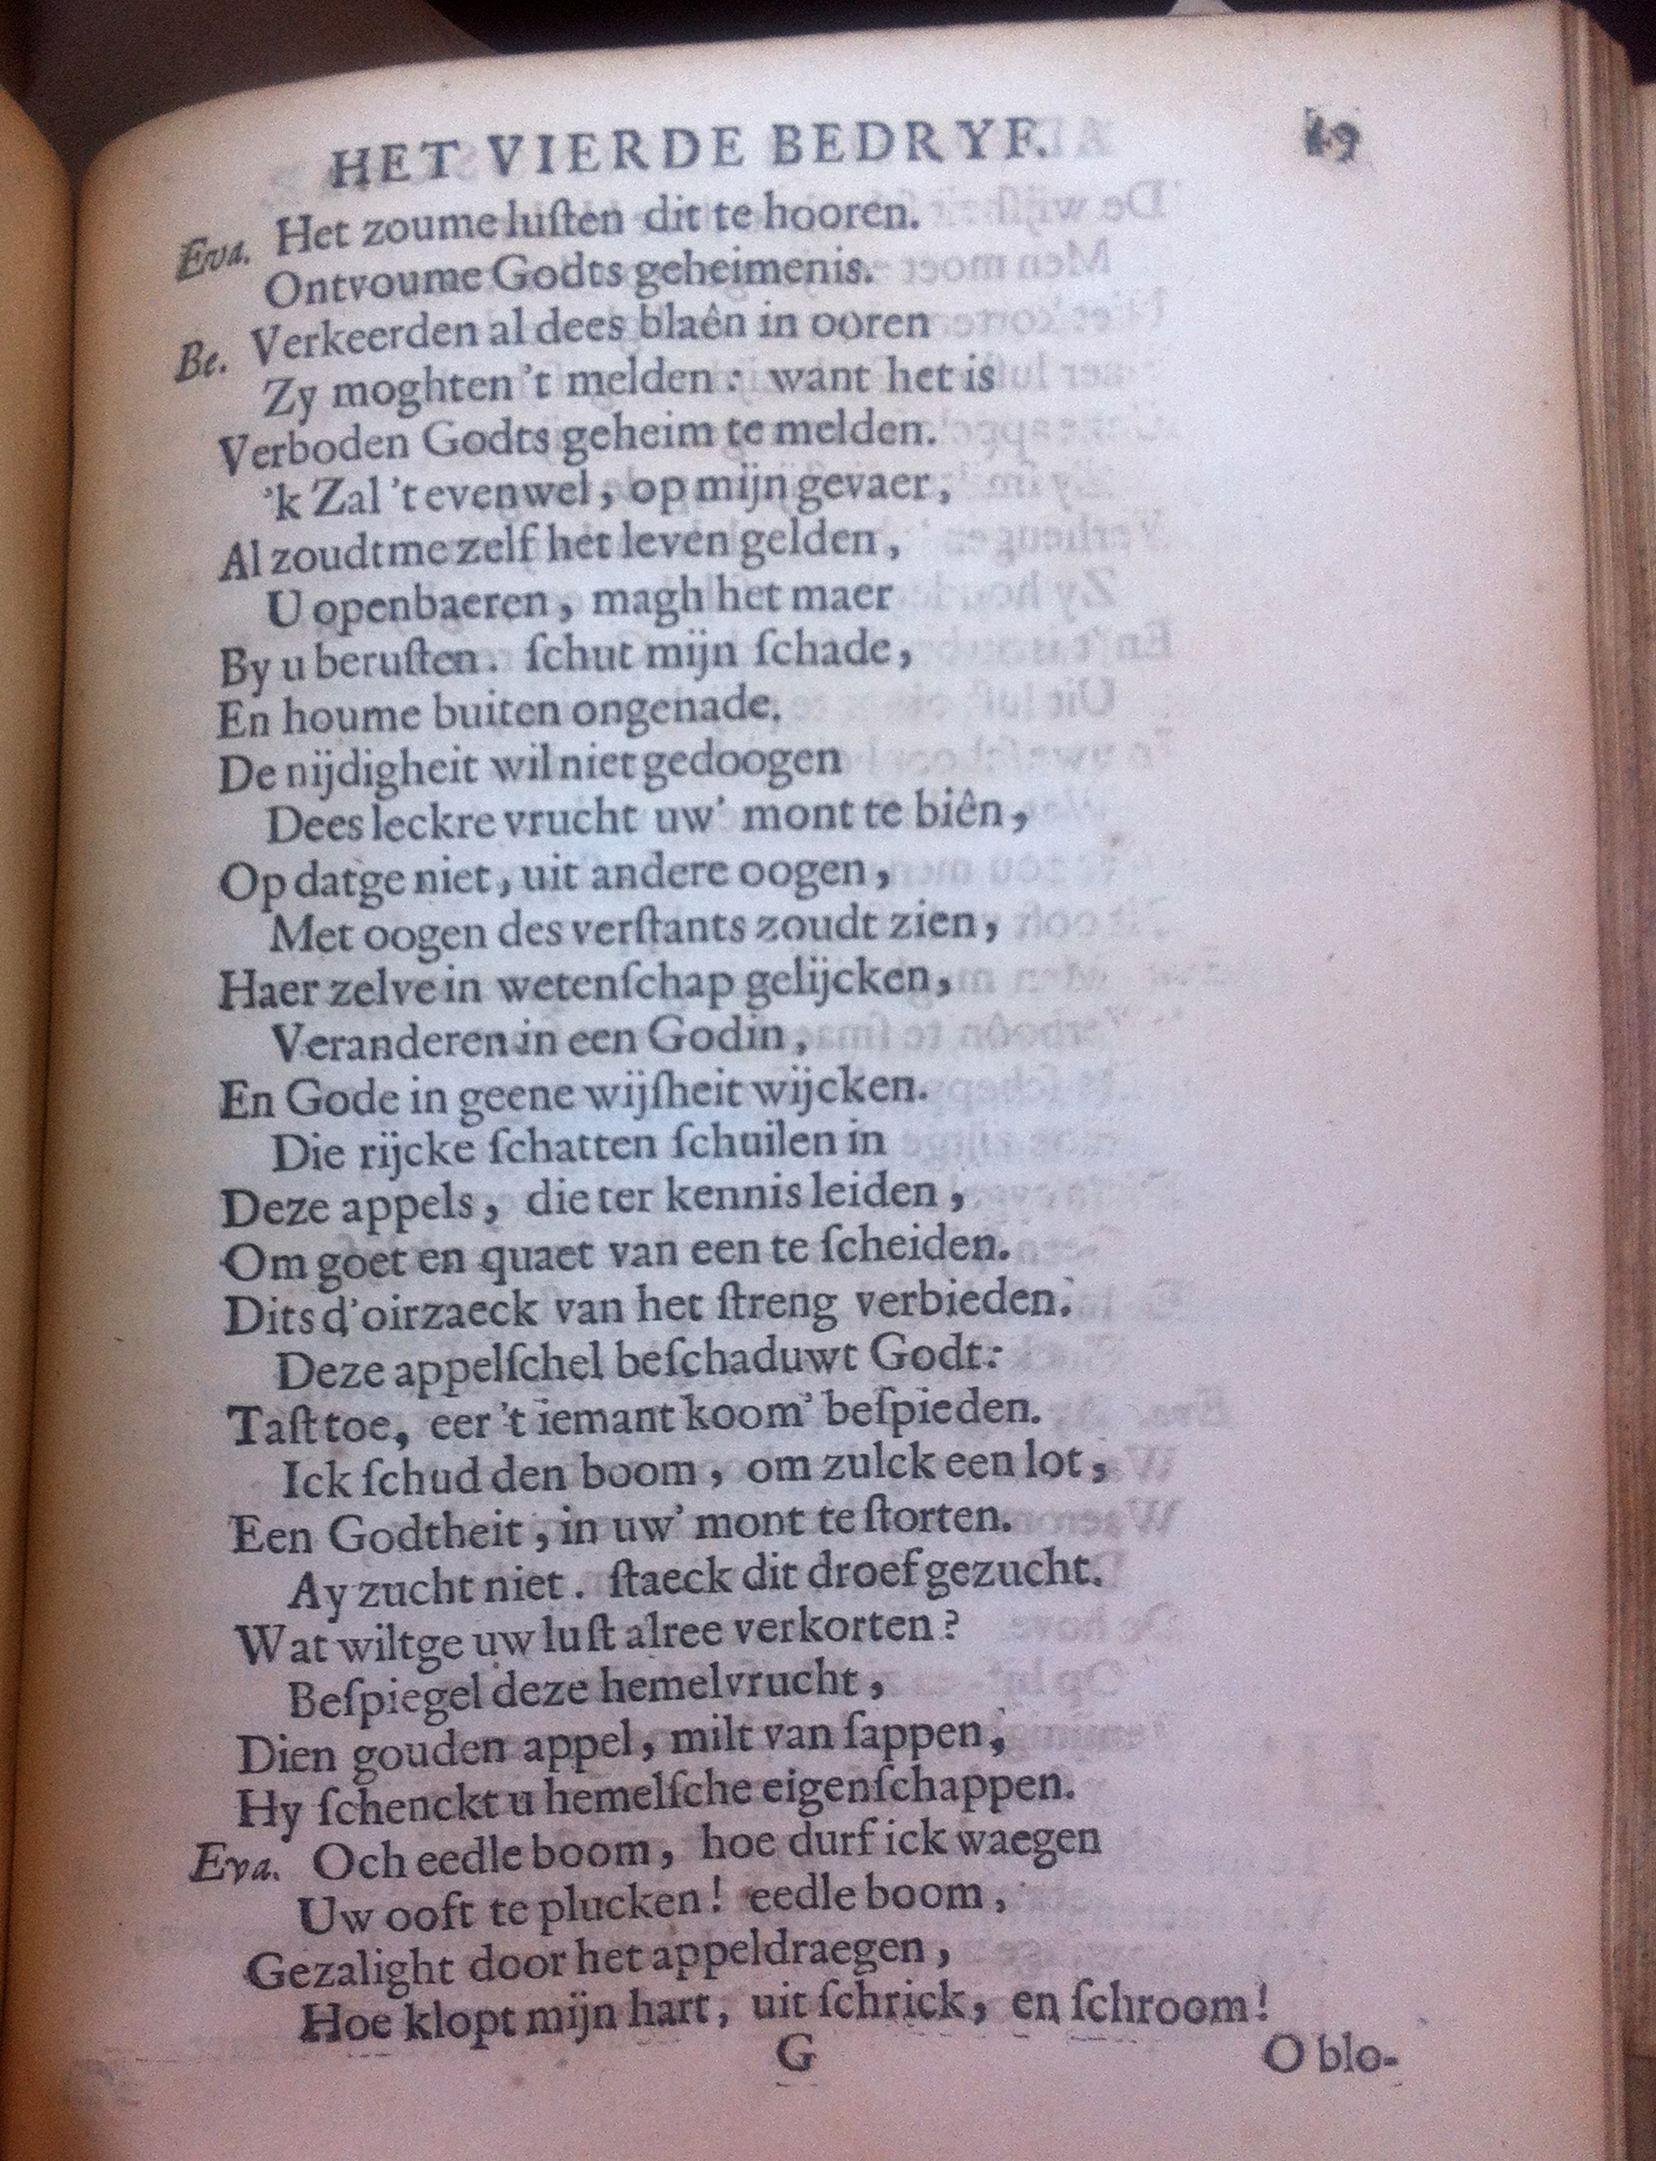 HET VIERDE BEDRYF. 49
Eva. Het zoume luſten dit te hooren.
Ontvoume Godts geheimenis.
Be. Verkeerden al dees blaên in ooren
Zy moghten 't melden: want het is
Verboden Godts geheim te melden.
'k Zal 't evenwel, op mijn gevaer,
Al zoudtme zelf het leven gelden,
U openbaeren, magh het maer
By u beruſten. ſchut mijn ſchade,
En houme buiten ongenade.
De nijdigheit wil niet gedoogen
Dees leckre vrucht uw' mont te biên,
Op datge niet, uit andere oogen,
Met oogen des verſtants zoudt zien,
Haer zelve in wetenſchap gelijcken,
Veranderen in een Godin,
En Gode in geene wijſheit wijcken.
Die rijcke ſchatten ſchuilen in
Deze appels, die ter kennis leiden,
Om goet en quaet van een te ſcheiden.
Dits d'oirzaeck van het ſtreng verbieden.
Deze appelſchel beſchaduwt Godt:
Taſt toe, eer 't iemant koom' beſpieden.
Ick ſchud den boom, om zulck een lot,
Een Godtheit, in uw' mont te ſtorten.
Ay zucht niet. ſtaeck dit droef gezucht.
Wat wiltge uw luſt alree verkorten?
Beſpiegel deze hemelvrucht,
Dien gouden appel, milt van ſappen,
Hy ſchenckt u hemelſche eigenſchappen.
Eva. Och eedle boom, hoe durf ick waegen
Uw ooft te plucken! eedle boom,
Gezalight door het appeldraegen,
Hoe klopt mijn hart, uit ſchrick, en ſchroom!
G O blo-